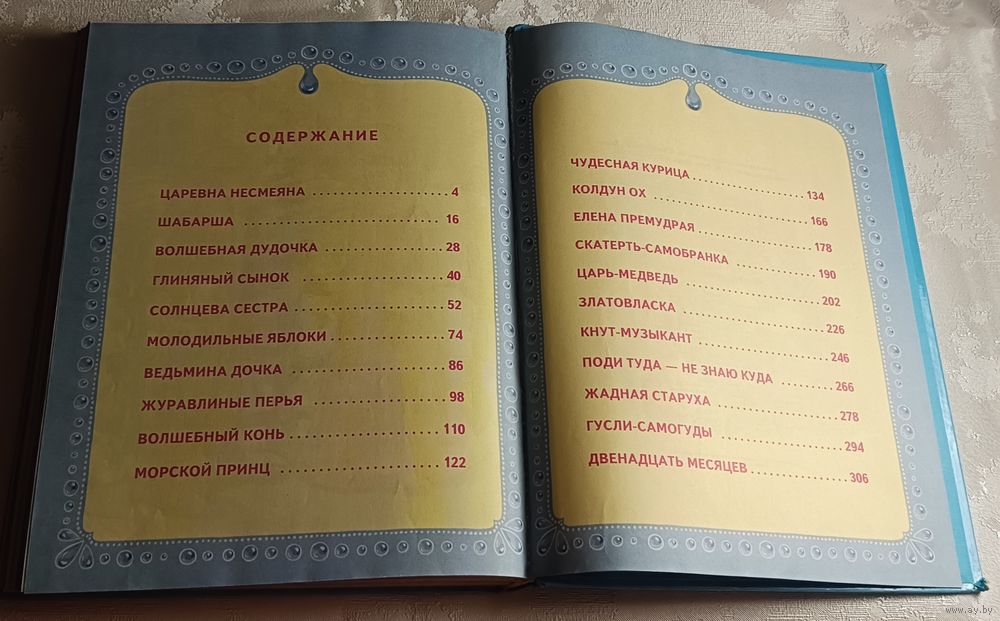 СОДЕРЖАНИЕ
ЦАРЕВНА НЕСМЕЯНА 4
ШАБАРША 16
ВОЛШЕБНАЯ ДУДОЧКА 28
ГЛИНЯНЫЙ СЫНОК 40
СОЛНЦЕВА СЕСТРА 52
МОЛОДИЛЬНЫЕ ЯБЛОКИ 74
ВЕДЬМИНА ДОЧКА 86
ЖУРАВЛИНЫЕ ПЕРЬЯ 98
ВОЛШЕБНЫЙ КОНЬ 110
МОРСКОЙ ПРИНЦ 122
ЧУДЕСНАЯ КУРИЦА 134
КОЛДУН ОХ 166
ЕЛЕНА ПРЕМУДРАЯ 178
СКАТЕРТЬ-САМОБРАНКА 190
ЦАРЬ-МЕДВЕДЬ 202
ЗЛАТОВЛАСКА 226
КНУТ-МУЗЫКАНТ 246
ПОДИ ТУДА — НЕ ЗНАЮ КУДА 266
ЖАДНАЯ СТАРУХА 278
ГУСЛИ-САМОГУДЫ 294
ДВЕНАДЦАТЬ МЕСЯЦЕВ 306
www.ay.by